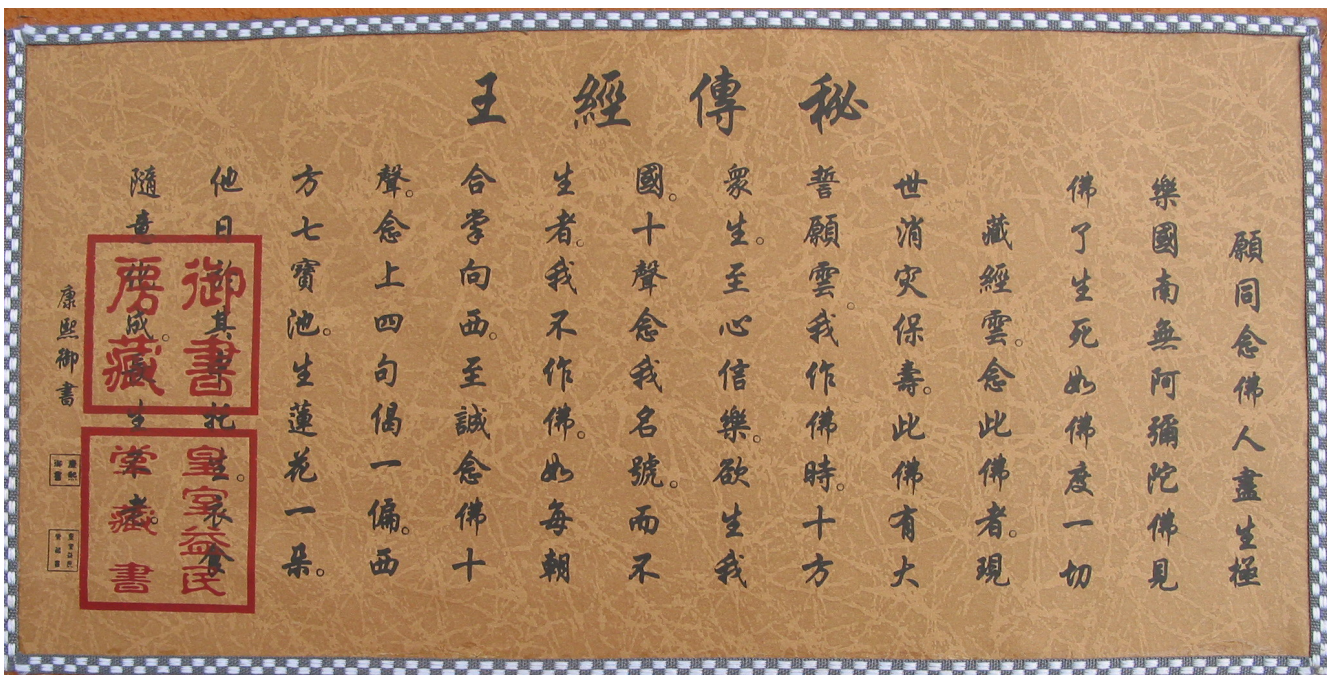 秘傳經王
願同念佛人盡生極
樂國南無阿彌陀佛見
佛了生死如佛度一切
藏經雲。念此佛者。現
世消灾保壽。此佛有大
誓願雲。我作佛時。十方
衆生。至心信樂。欲生我
國。十聲念我名號。而不
生者。我不作佛。如每朝
合掌向西。至誠念佛十
聲。念上四句偈一偏。西
方七寶池。生蓮花一朵。
他日其托生。衣食
隨意成。生不老。
康熙御書
御書
房藏
皇室益民
堂藏書